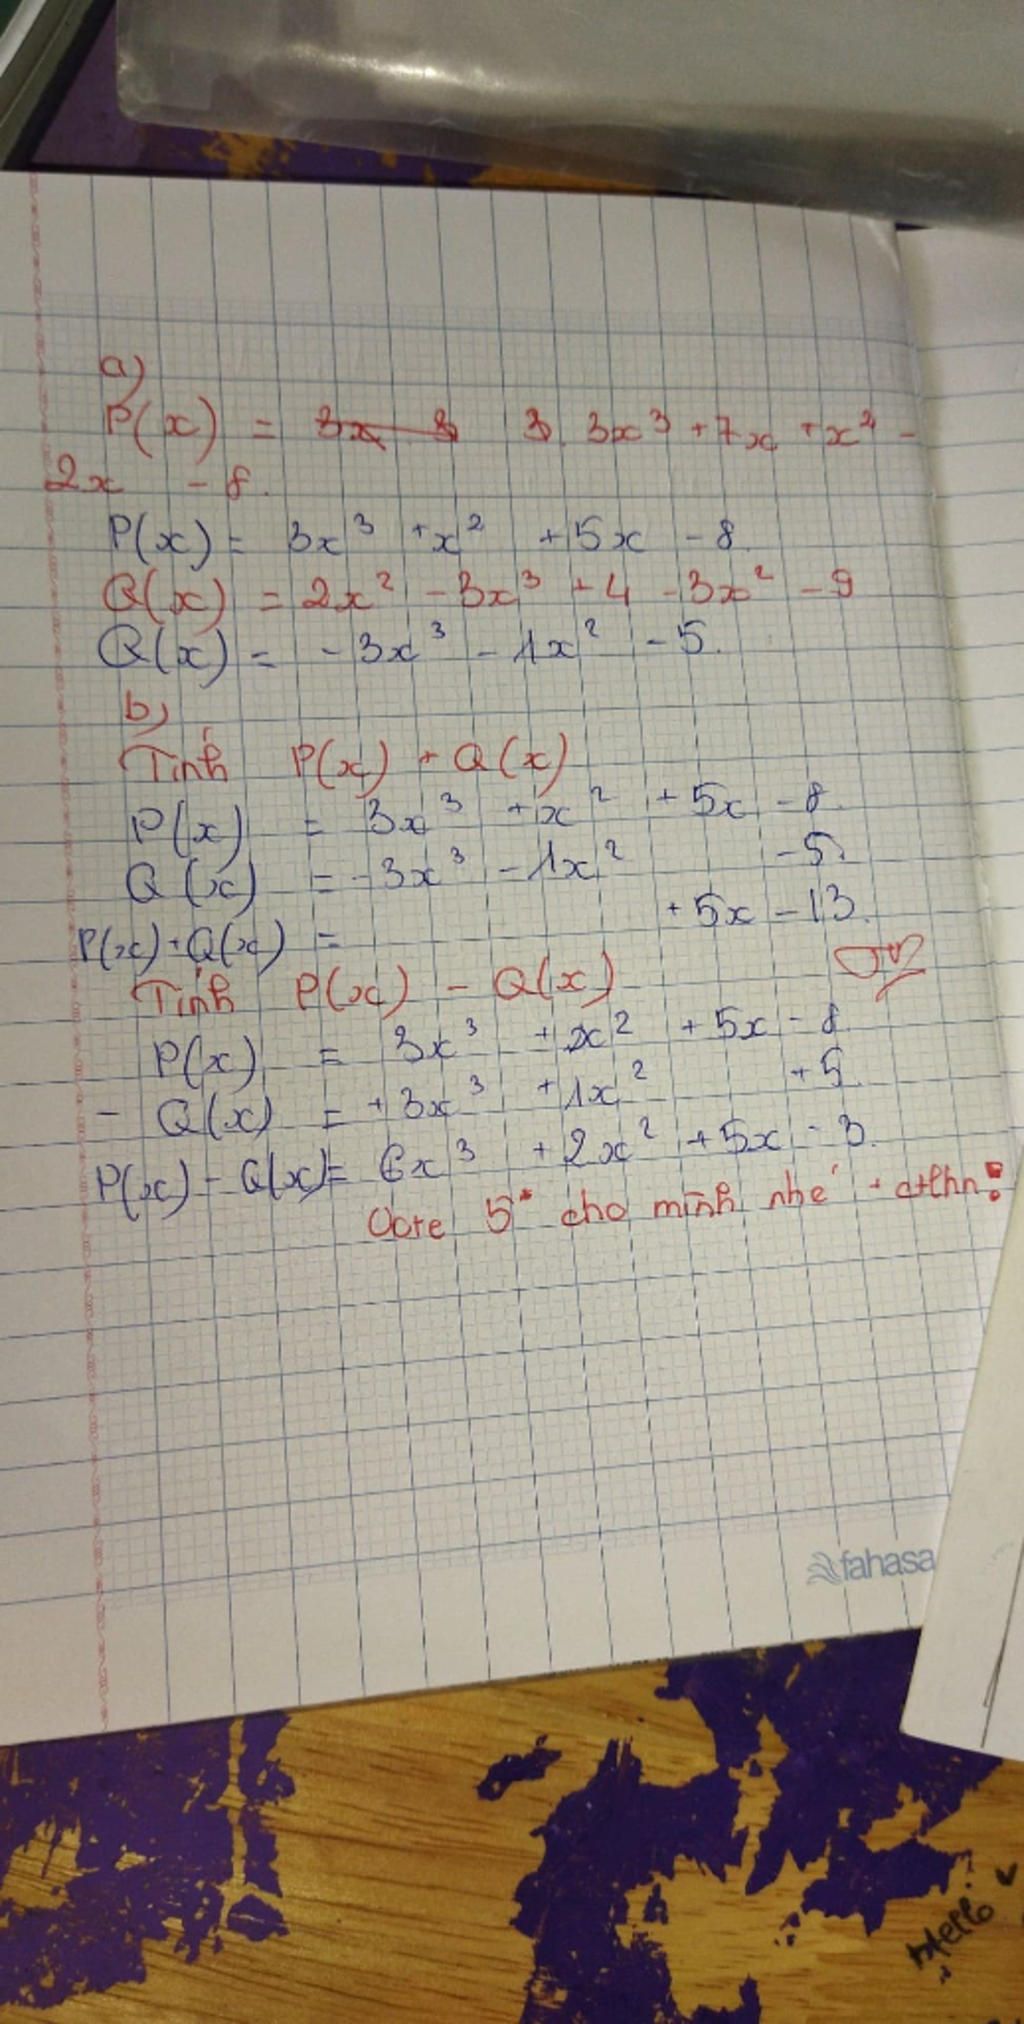 a)
P(x) = 3x 3 3. 3x³ + 7x + x² -
2x - 8.
P(x) = 3x³ + x² + 5x - 8.
Q(x) = 2x² - 3x³ + 4 - 3x² - 9
Q(x) = - 3x³ - 1x² - 5.
b)
Tính P(x) + Q(x)
P(x) = 3x³ + x² + 5x - 8.
Q(x) = - 3x³ - 1x² - 5.
P(x) + Q(x) = + 5x - 13.
Tính P(x) - Q(x)
P(x) = 3x³ + x² + 5x - 8
- Q(x) = + 3x³ + 1x² + 5.
P(x) - Q(x) = 6x³ + 2x² + 5x - 3.
Vote 5* cho mình nhé
fahasa
Hello